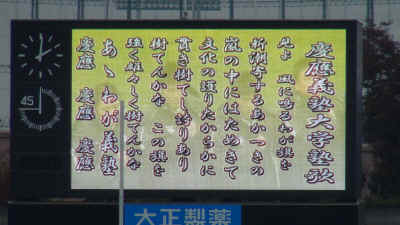 慶應義塾大学塾歌
見よ 風に鳴るわが旗を
新潮寄するあかつきの
嵐の中にはためきて
文化の護りたからかに
貫き樹てし誇りあり
樹てんかな この旗を
強く雄々しく樹てんかな
あゝわが義塾
慶應 慶應 慶應
45
大正製薬